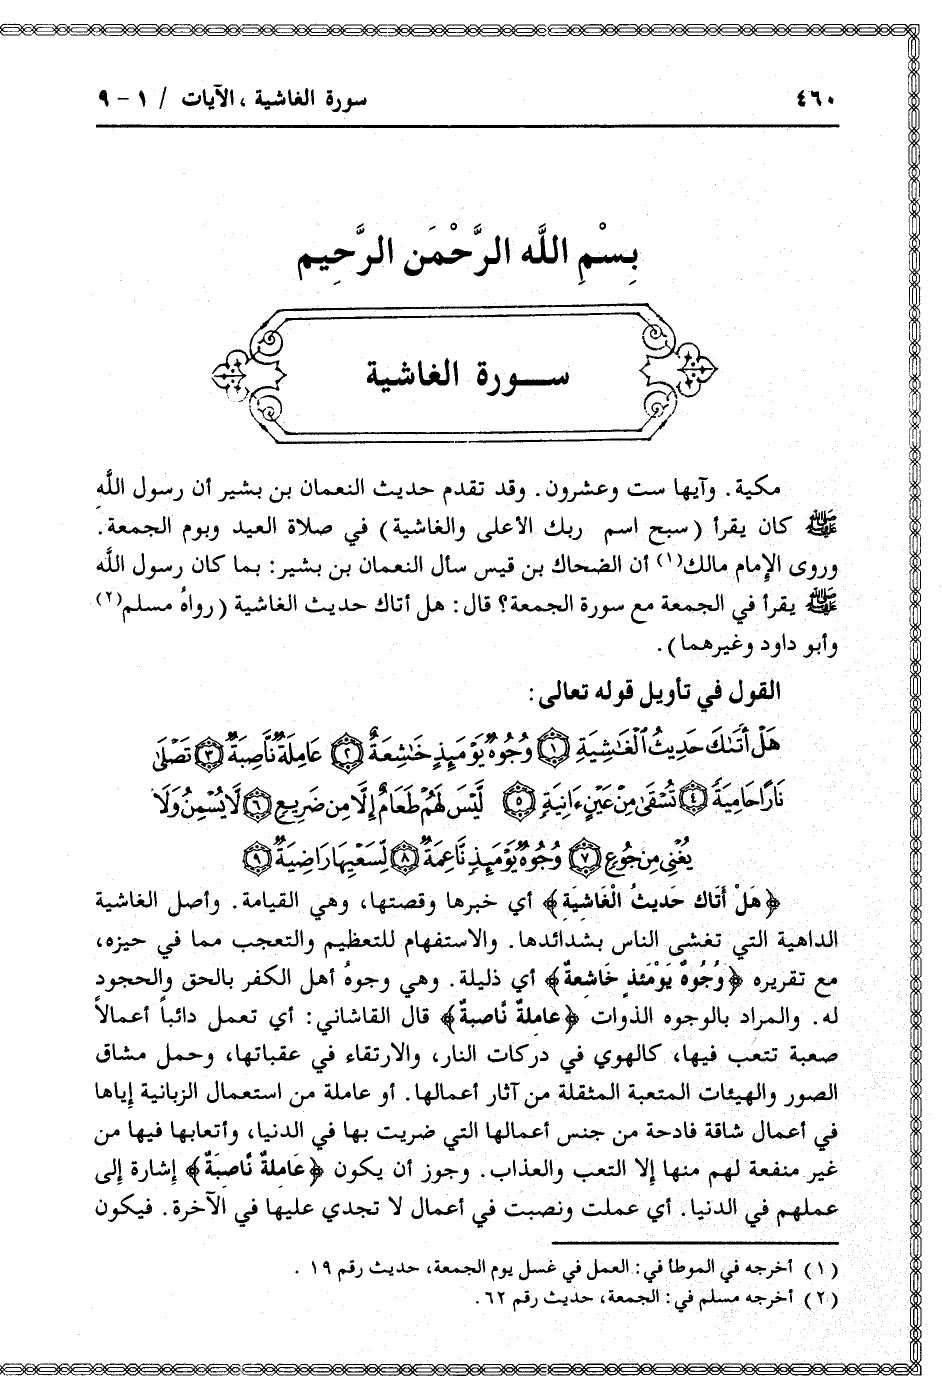 ٤٦٠
سورة الغاشية ، الآيات / ١ - ٩
بِسْمِ اللَّه الرَّحْمَن الرَّحِيم
ســورة الغاشية
مكية. وآيها ست وعشرون. وقد تقدم حديث النعمان بن بشير أن رسول اللَّه
ﷺ كان يقرأ (سبح اسم ربك الأعلى والغاشية) في صلاة العيد ويوم الجمعة.
وروى الإمام مالك(١) أن الضحاك بن قيس سأل النعمان بن بشير: بما كان رسول الله
ﷺ يقرأ في الجمعة مع سورة الجمعة؟ قال: هل أتاك حديث الغاشية (رواهُ مسلم(٢)
وأبو داود وغيرهما).
القول في تأويل قوله تعالى:
هَلْ أَتَىٰكَ حَدِيثُ ٱلْغَٰشِيَةِ ١ وُجُوهٌ يَوْمَئِذٍ خَٰشِعَةٌ ٢ عَامِلَةٌ نَّاصِبَةٌ ٣ تَصْلَىٰ
نَارًا حَامِيَةً ٤ تُسْقَىٰ مِنْ عَيْنٍ ءَانِيَةٍ ٥ لَّيْسَ لَهُمْ طَعَامٌ إِلَّا مِن ضَرِيعٍ ٦ لَّا يُسْمِنُ وَلَا
يُغْنِى مِن جُوعٍ ٧ وُجُوهٌ يَوْمَئِذٍ نَّاعِمَةٌ ٨ لِّسَعْيِهَا رَاضِيَةٌ ٩
﴿هَلْ أَتَاكَ حَدِيثُ الْغَاشِيَةِ﴾ أي خبرها وقصتها، وهي القيامة. وأصل الغاشية
الداهية التي تغشى الناس بشدائدها. والاستفهام للتعظيم والتعجب مما في حيزه،
مع تقريره ﴿وُجُوهٌ يَوْمَئذٍ خَاشِعةٌ﴾ أي ذليلة. وهي وجوهُ أهل الكفر بالحق والجحود
له. والمراد بالوجوه الذوات ﴿عاملةٌ نَّاصبةٌ﴾ قال القاشاني: أي تعمل دائباً أعمالاً
صعبة تتعب فيها، كالهوي في دركات النار، والارتقاء في عقباتها، وحمل مشاق
الصور والهيئات المتعبة المثقلة من آثار أعمالها. أو عاملة من استعمال الزبانية إياها
في أعمال شاقة فادحة من جنس أعمالها التي ضريت بها في الدنيا، وأتعابها فيها من
غير منفعة لهم منها إلا التعب والعذاب. وجوز أن يكون ﴿عَاملةٌ نَّاصِبَةٌ﴾ إشارة إلى
عملهم في الدنيا. أي عملت ونصبت في أعمال لا تجدي عليها في الآخرة. فيكون
(١) أخرجه في الموطأ في: العمل في غسل يوم الجمعة، حديث رقم ١٩ .
(٢) أخرجه مسلم في: الجمعة، حديث رقم ٦٢ .